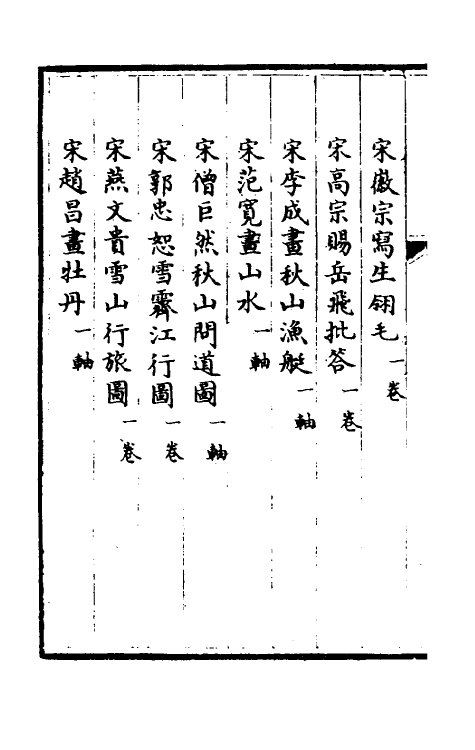 宋徽宗寫生翎毛一卷
宋高宗賜岳飛批答一卷
宋李成畫秋山漁艇一軸
宋范寛畫山水一軸
宋僧巨然秋山問道圖一軸
宋郭忠恕雪霽江行圖一卷
宋燕文貴雪山行旅圖一卷
宋趙昌畫牡丹一軸